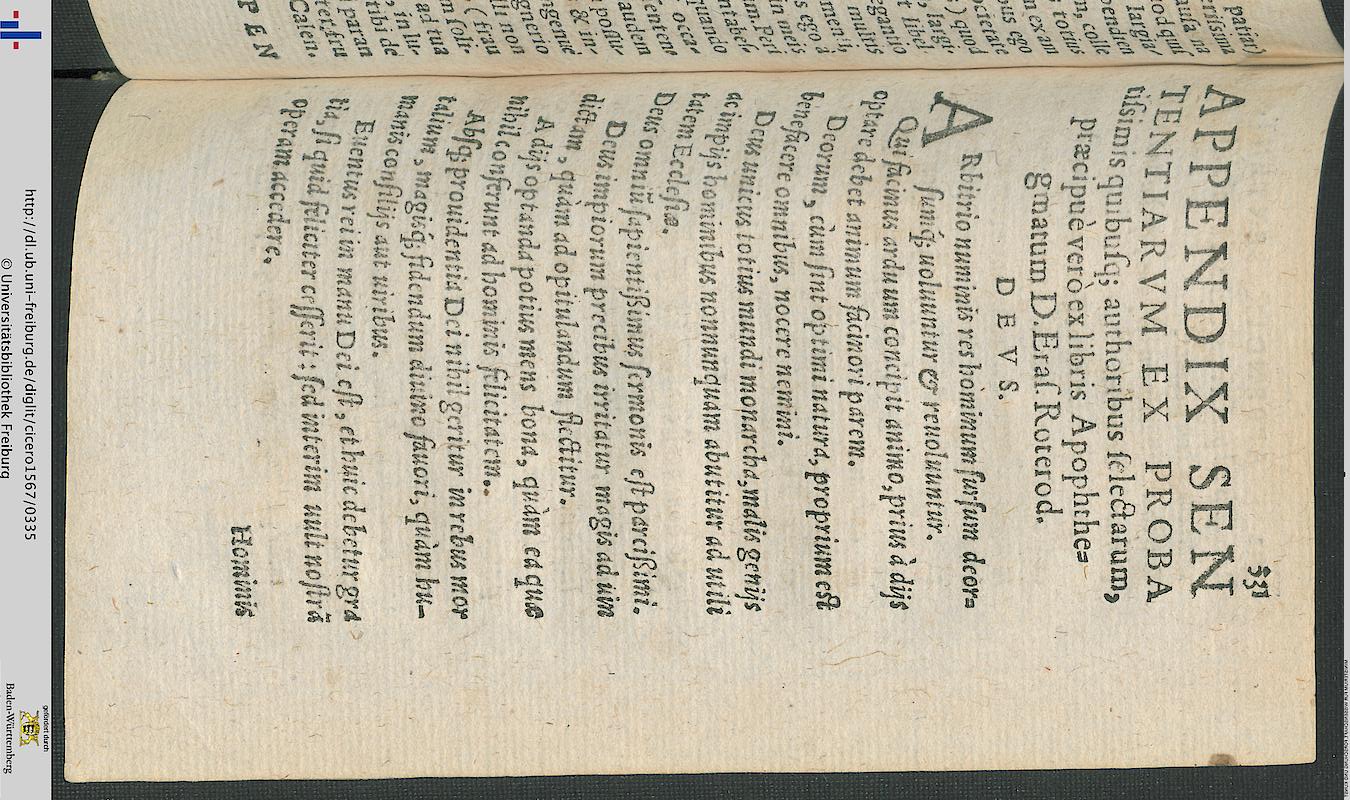 331
APPENDIX SEN
TENTIARVM EX PROBA
tißimis quibuſq; authoribus ſelectarum,
præcipuè verò ex libris Apophtheg=
gmatum D. Eraſ Roterod.
DEVS.
ARbitrio numinis res hominum ſurſum deor=
ſumq; uoluuntur & reuoluuntur.
Qui facinus arduum concipit animo, prius à dijs
optare debet animum facinori parem.
Deorum, cùm ſint optimi natura, proprium eſt
benefacere omnibus, nocere nemini.
Deus unicus totius mundi monarcha, malis genijs
ac impijs hominibus nonnunquam abutitur ad utili
tatem Eccleſiæ.
Deus omniū ſapientißimus ſermonis eſt parcißimi.
Deus impiorum precibus irritatur magis ad uin
dictam, quàm ad opitulandum flectitur.
A dijs optanda potius mens bona, quàm ea quæ
nihil conferunt ad hominis felicitatem.
Abſq; prouidentia Dei nihil geritur in rebus mor
talium, magisq; fidendum diuino fauori, quàm hu-
manis conſilijs aut uiribus.
Euentus rei in manu Dei eſt, et huic debetur gra
tia, ſi quid feliciter ceſſerit: ſed interim uult noſtrā
operam accedere.
Hominis
PEN
http://dl.ub.uni-freiburg.de/diglit/cicero1567/0335
© Universitätsbibliothek Freiburg
gefördert durch
Baden-Württemberg